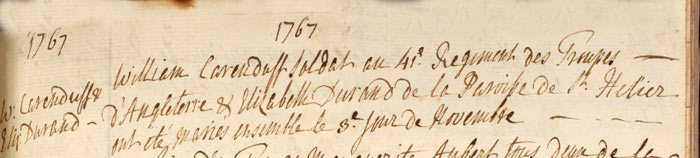 1767
1767
William Carenduff Soldat au 41e. Regiment des Troupes —
W. Carenduff &
d'Angleterre & Elizabeth Durand de la Paroisse de St. Helier
Eliz. Durand -
ont été mariés ensemble le 3e. jour de Novembre — - - -
Marguerite Aubert tous deux de la